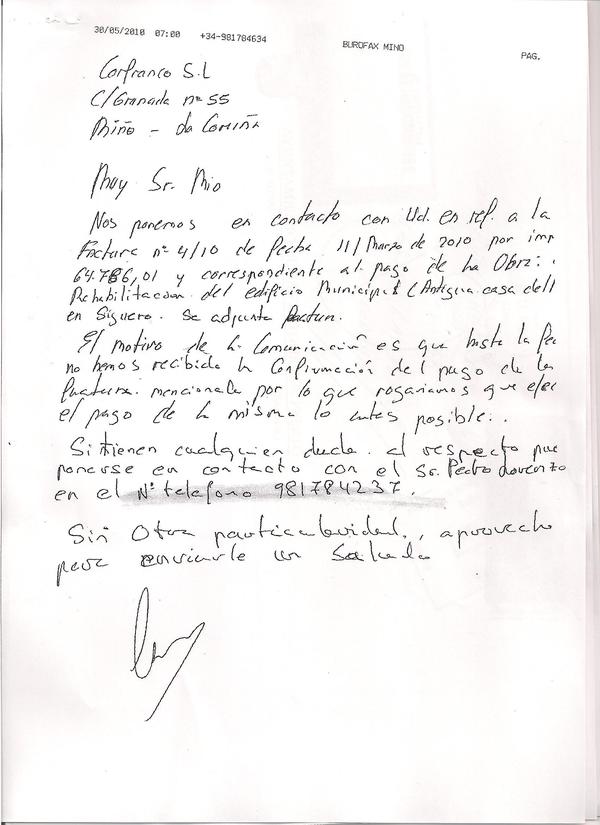 30/05/2010 07:00 +34-981784634 BUROFAX MINO PAG.
Corfranco S.L
C/Granada nº 55
Miño - La Coruña
Muy Sr. Mio
Nos ponemos en contacto con Ud. en ref. a la
Factura nº 4/10 de fecha 11/Marzo de 2010 por imp
64.786,01 y correspondiente al pago de la Obra:
Rehabilitacion del edificio Municipal (Antigua casa del
en Sigüero. Se adjunta factura.
El motivo de la Comunicación es que hasta la fec
no hemos recibido la Confirmación del pago de la
factura mencionada por lo que rogariamos que efec
el pago de la misma lo antes posible..
Si tienen cualquier duda al respecto pue
ponerse en contacto con el Sr. Pedro Lorenzo
en el Nº telefono 981784237.
Sin Otra particularidad, aprovecho
para enviarle un Saludo